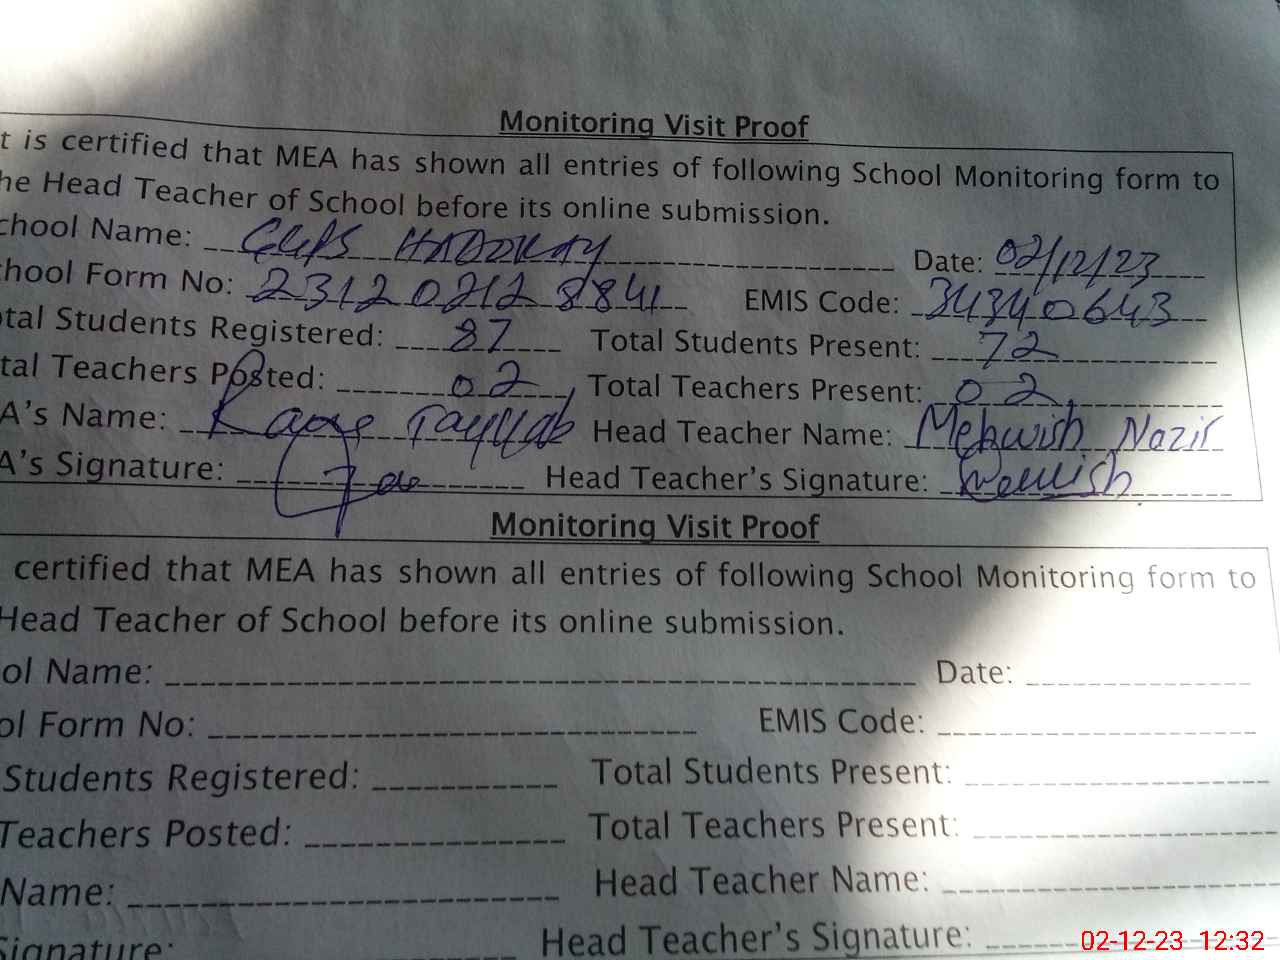 Monitoring Visit Proof
t is certified that MEA has shown all entries of following School Monitoring form to
he Head Teacher of School before its online submission.
chool Name: GGPS Date: 02/12/23
chool Form No: 2312 0212 8841 EMIS Code: 34340643
otal Students Registered: 87 Total Students Present: 72
tal Teachers Posted: 02, Total Teachers Present: 02,
A's Name: Tayyab Head Teacher Name: Mehwish Nazir
A's Signature: Head Teacher's Signature: Mehwish
Monitoring Visit Proof
certified that MEA has shown all entries of following School Monitoring form to
Head Teacher of School before its online submission.
ol Name: Date:
ol Form No: EMIS Code:
Students Registered: Total Students Present:
Teachers Posted: Total Teachers Present:
Name: Head Teacher Name:
Signature: Head Teacher's Signature:
02-12-23 12:32